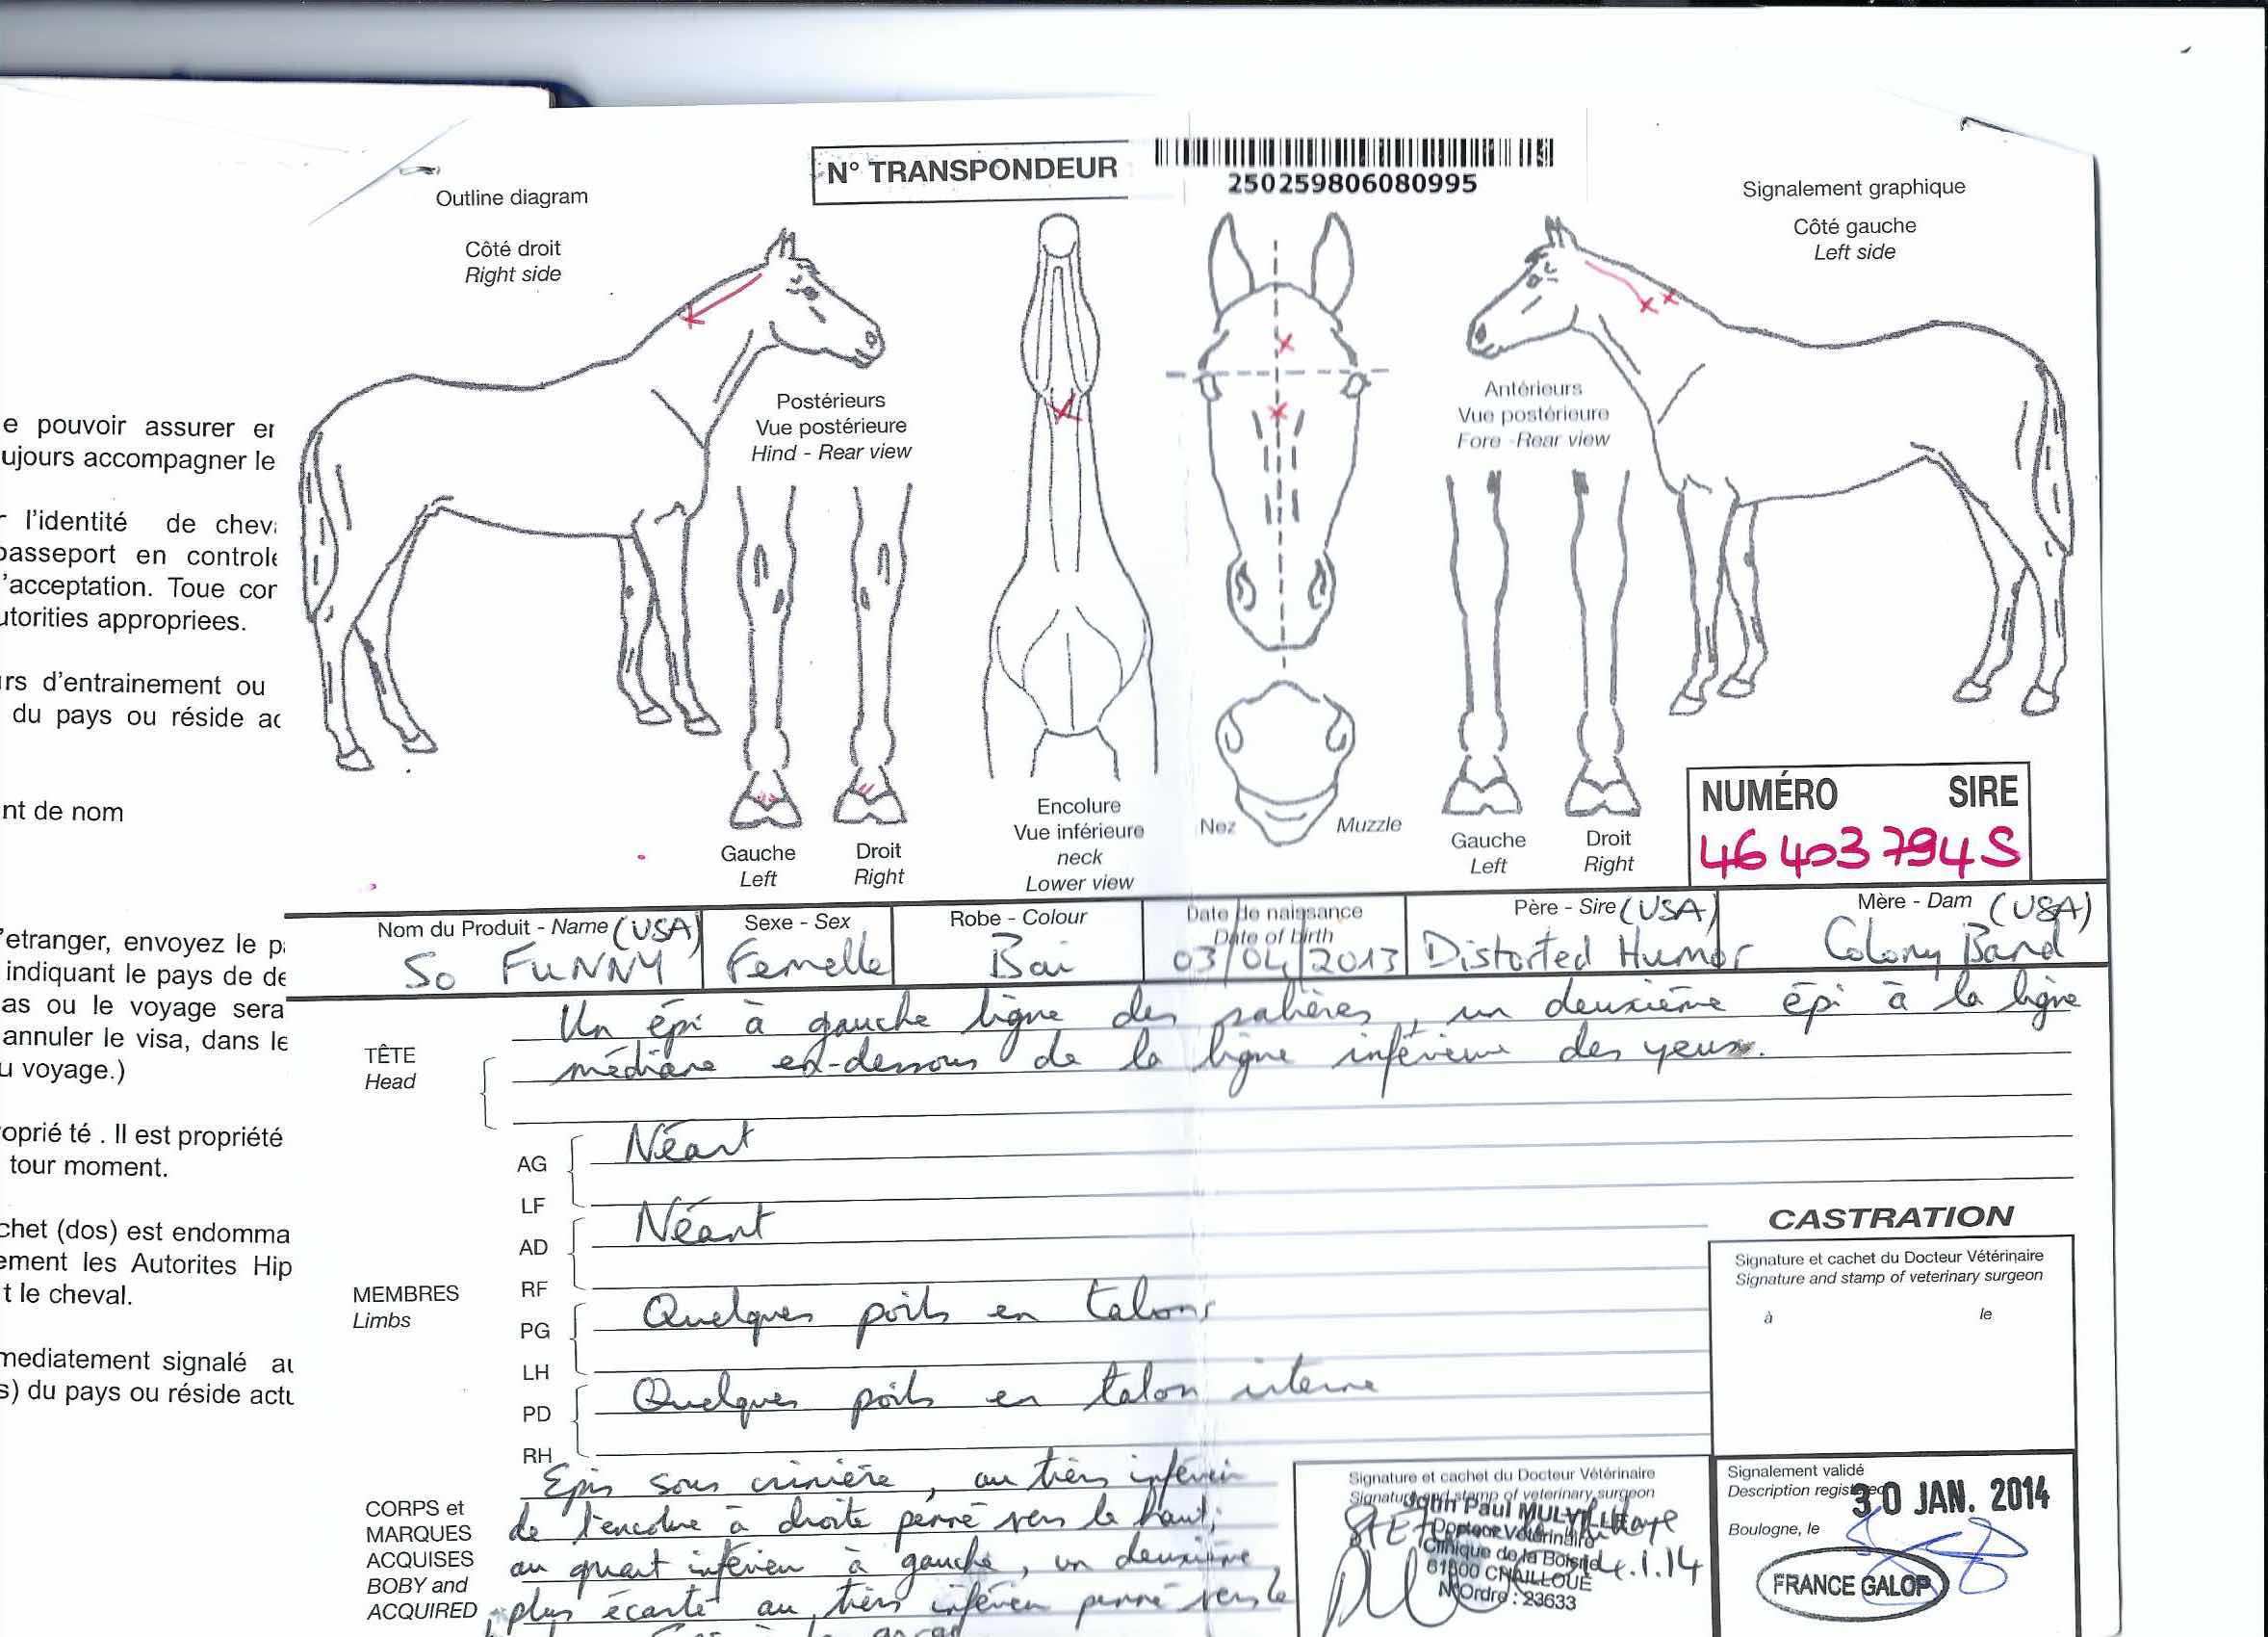 N° TRANSPONDEUR
250259806080995
Outline diagram
Côté droit
Right side
Signalement graphique
Côté gauche
Left side
Postérieurs
Vue postérieure
Hind - Rear view
Antérieurs
Vue postérieure
Fore - Rear view
e pouvoir assurer er
ujours accompagner le
r l'identité de chev
passeport en controle
'acceptation. Toue cor
utorities appropriees.
rs d'entrainement ou
du pays ou réside ac
nt de nom
Gauche
Left
Droit
Right
Encolure
Vue inférieure
neck
Lower view
Nez
Muzzle
Gauche
Left
Droit
Right
NUMÉRO SIRE
46 403 794 S
'etranger, envoyez le p
indiquant le pays de de
as ou le voyage sera
annuler le visa, dans le
u voyage.)
oprié té . Il est propriété
tour moment.
chet (dos) est endomma
ement les Autorites Hip
t le cheval.
mediatement signalé au
s) du pays ou réside actu
Nom du Produit - Name (USA)
So FUNNY
Sexe - Sex
Femelle
Robe - Colour
Bai
Date de naissance
Date of birth
03/04/2013
Père - Sire (USA)
Distorted Humor
Mère - Dam (USA)
Colony Band
TÊTE
Head
Un épi à gauche ligne des salières, un deuxième épi à la ligne
médiane en-dessous de la ligne inférieure des yeux.
MEMBRES
Limbs
AG
LF
Néant
AD
RF
Néant
PG
LH
Quelques poils en talons
PD
RH
Quelques poils en talon interne
CORPS et
MARQUES
ACQUISES
BOBY and
ACQUIRED
Epis sous crinière, au tiers inférieur
de l'encolure à droite penné vers le haut,
au quart inférieur à gauche, un deuxième
plus écarté au tiers inférieur penné vers le
CASTRATION
Signature et cachet du Docteur Vétérinaire
Signature and stamp of veterinary surgeon
à le
Signature et cachet du Docteur Vétérinaire
Signature and stamp of veterinary surgeon
John Paul MULVILLE
Docteur Vétérinaire
Clinique de la Boisrie
61500 CHAILLOUE
N° Ordre : 23633
4.1.14
Signalement validé
Description registered
30 JAN. 2014
Boulogne, le
FRANCE GALOP